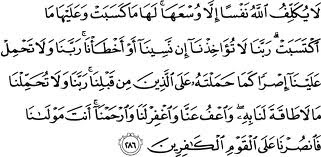 لَا يُكَلِّفُ اللَّهُ نَفْسًا إِلَّا وُسْعَهَا ۚ لَهَا مَا كَسَبَتْ وَعَلَيْهَا مَا
اكْتَسَبَتْ ۗ رَبَّنَا لَا تُؤَاخِذْنَا إِن نَّسِينَا أَوْ أَخْطَأْنَا ۚ رَبَّنَا وَلَا تَحْمِلْ
عَلَيْنَا إِصْرًا كَمَا حَمَلْتَهُ عَلَى الَّذِينَ مِن قَبْلِنَا ۚ رَبَّنَا وَلَا تُحَمِّلْنَا
مَا لَا طَاقَةَ لَنَا بِهِ ۖ وَاعْفُ عَنَّا وَاغْفِرْ لَنَا وَارْحَمْنَا ۚ أَنتَ مَوْلَانَا
فَانصُرْنَا عَلَى الْقَوْمِ الْكَافِرِينَ ﴿٢٨٦﴾